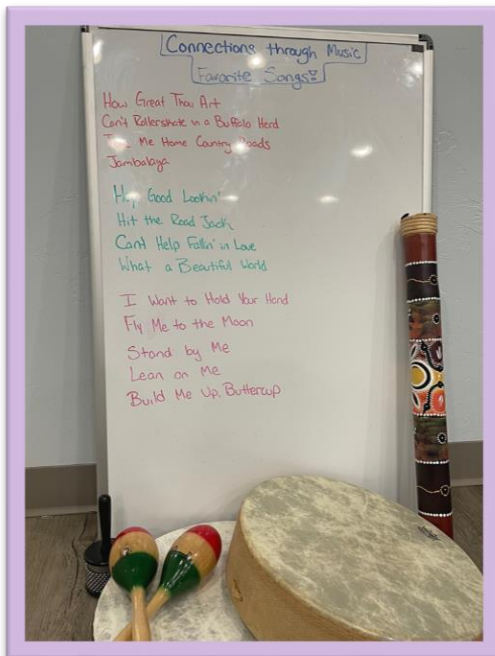 Connections through Music
Favorite Songs
How Great Thou Art
Can't Rollerskate in a Buffalo Herd
Me Home Country Roads
Jambalaya
Hey Good Lookin'
Hit the Road Jack
Can't Help Fallin' in Love
What a Beautiful World
I Want to Hold Your Hand
Fly Me to the Moon
Stand by Me
Lean on Me
Build Me Up, Buttercup